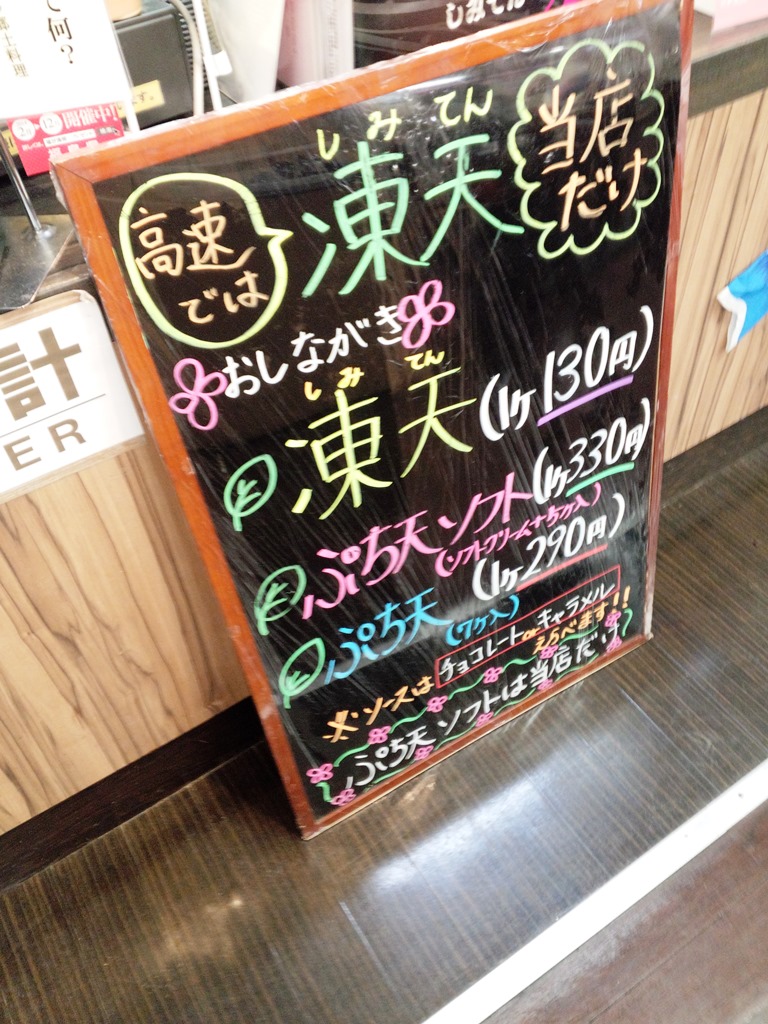 て何?
開催中!
しみてん
高速
では
しみてん
凍天
当店
だけ
計
ER
おしながき
しみてん
凍天(1ヶ130円)
ぷち天ソフト(1ヶ330円)
(ソフトクリーム+5ヶ入)
ぷち天(7ヶ入)(1ヶ290円)
※ソースはチョコレートorキャラメル
えらべます!!
ぷち天ソフトは当店だけ